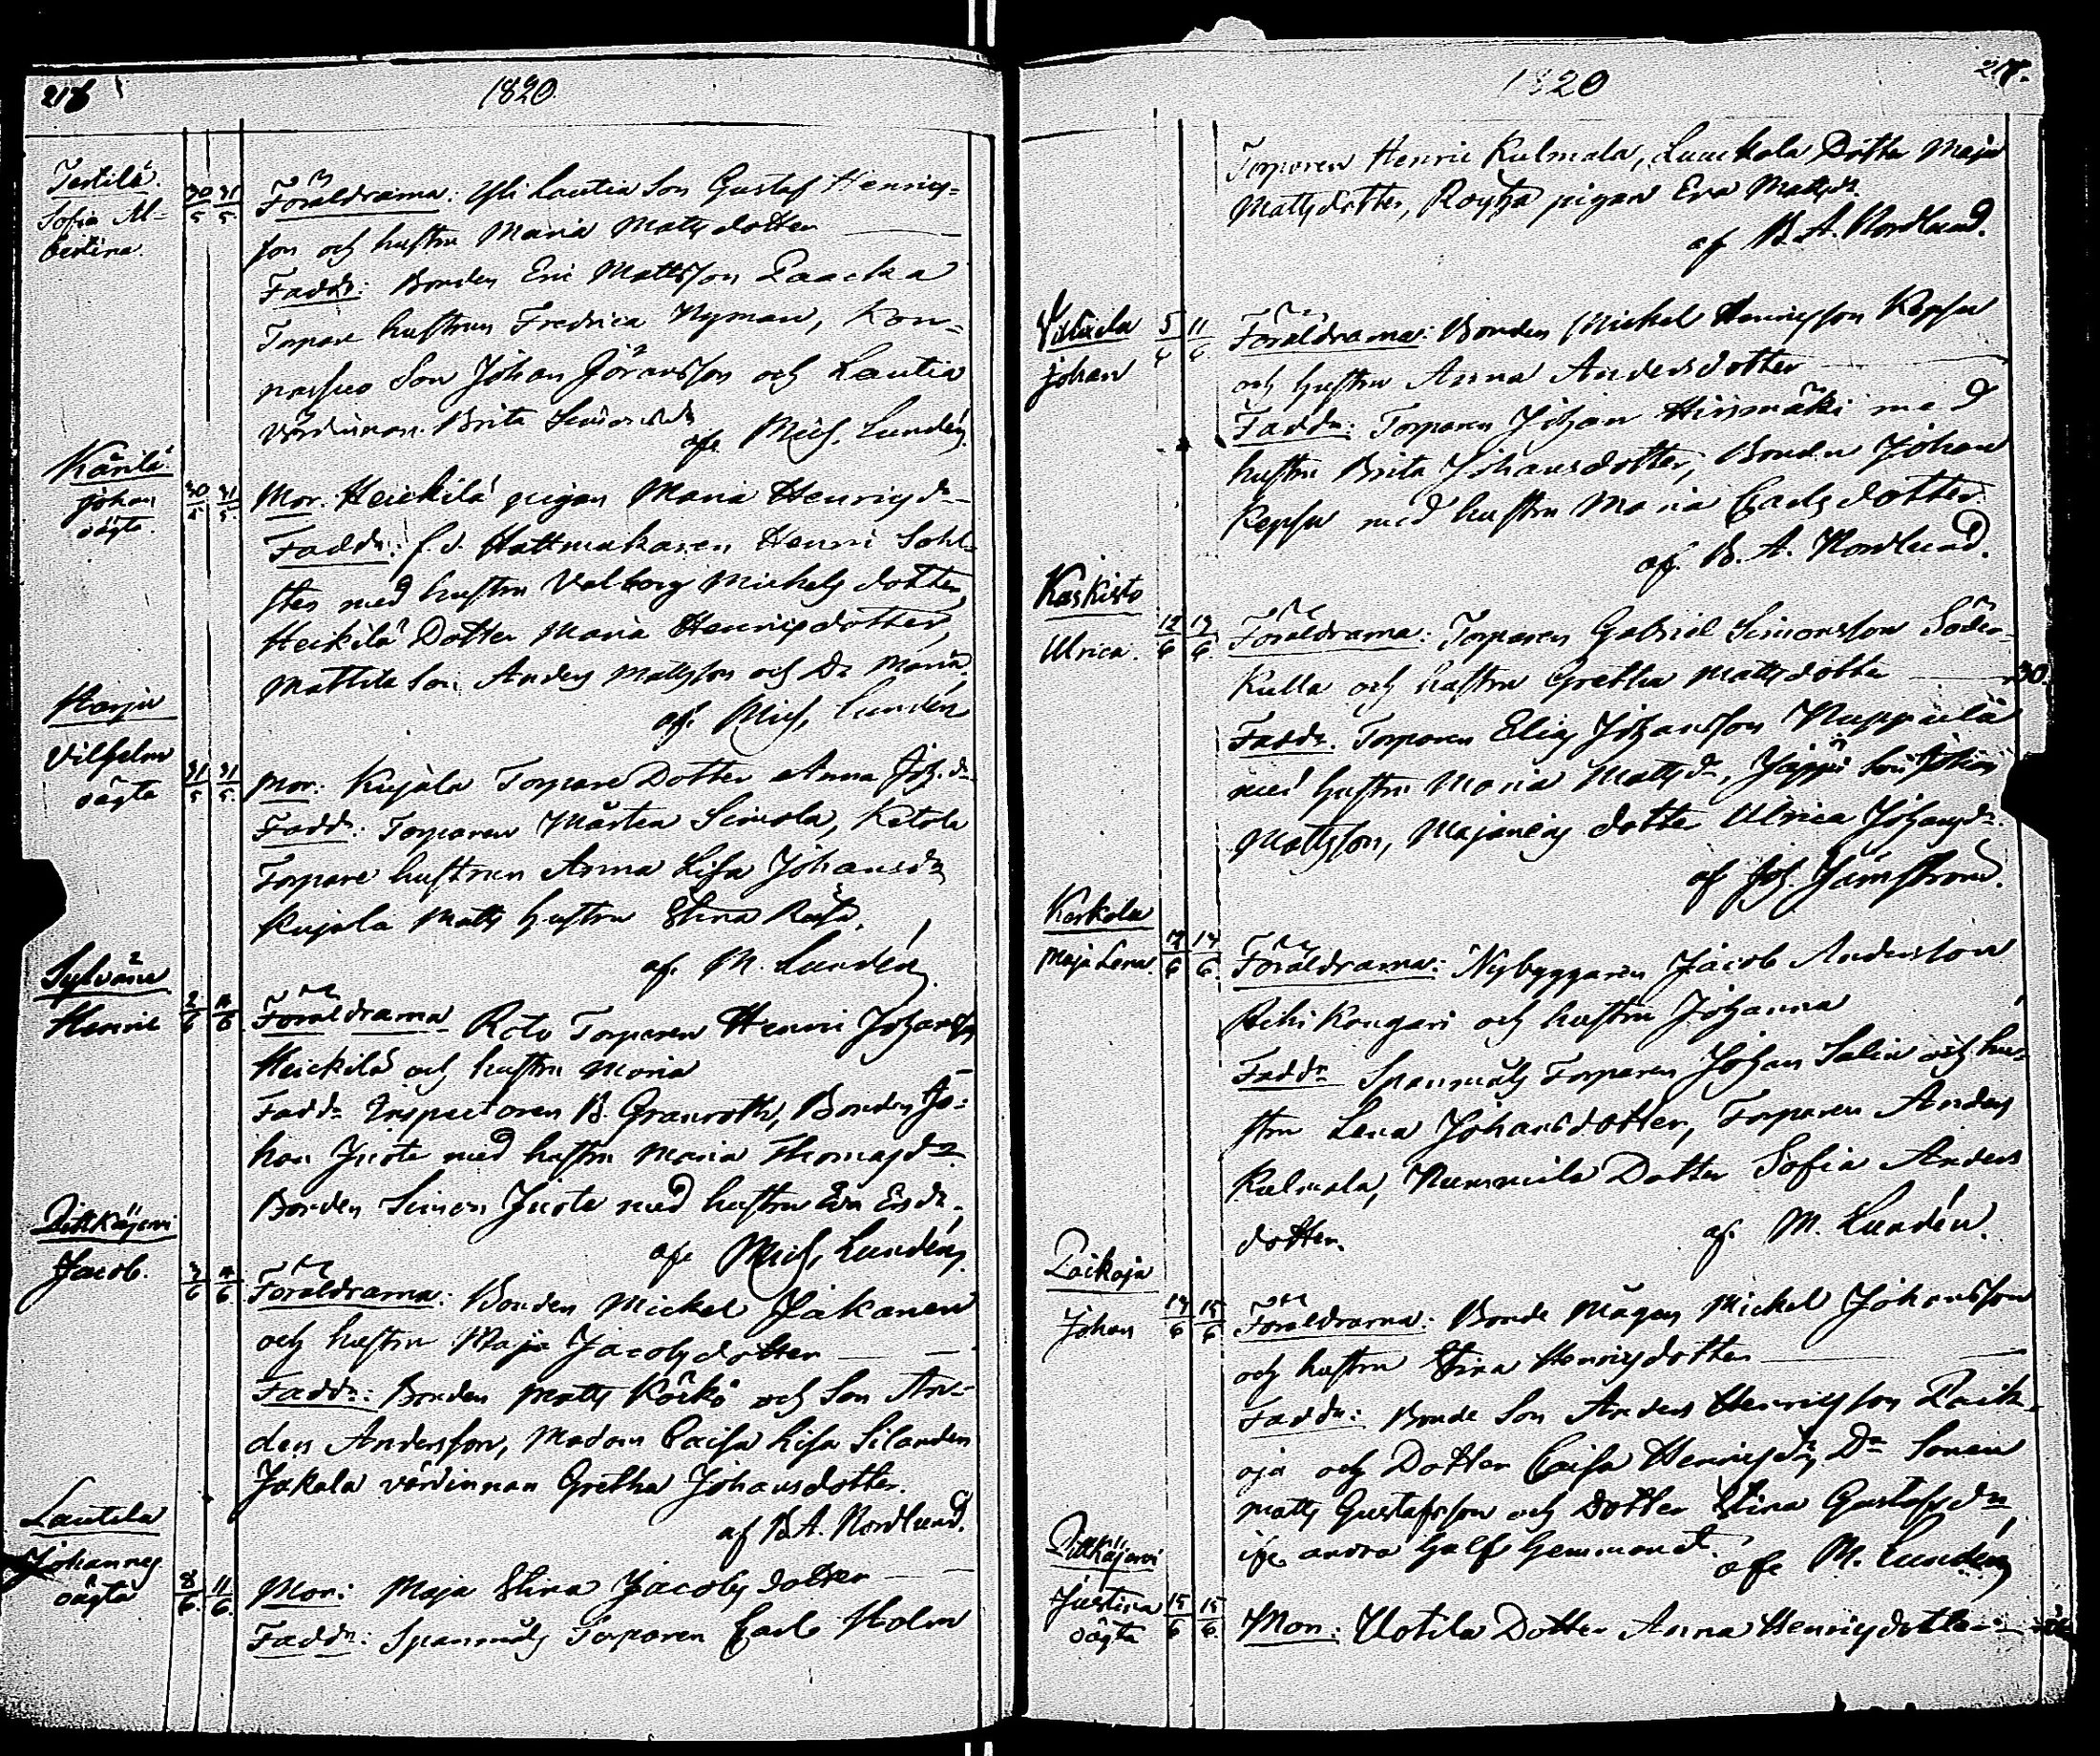 216
1820
Tertilä.
Sofia Al-
bertina.
30/5 31/5
Föräldrarna: Yli Lautia Son Gustaf Henrics-
son och hustru Maria Matts dotter
Faddr: Bonden Eric Mattsson Paacka
Torpare hustrun Fredrica Nyman, Kon-
Son Johan Göransson och Lautia
värdinnan Brita Simonsdr
af. Mich. Lundén.
Kärilä.
Johan
oägta.
30/5 31/5
Mor: Heickilä pigan Maria Henrics dr
Faddr: f. d. Hattmakaren Henric Sohl-
sten med hustru Valborg Michels dotter,
Heickilä Dotter Maria Henricsdotter,
Mattila Son Anders Mattsson och Dr Maria.
af. Mich. Lundén
Harju
Vilhelm
oägta
31/5 31/5
Mor: Kujala Torpare Dotter Anna Joh. dr
Faddr: Torparen Mårten Simola, Ketola
Torpare hustrun Anna Lisa Johansdr
Kujala Matts hustru Stina
af. M. Lundén.
Sylväne
Henric
2/6 4/6
Föräldrarna Roto Torparen Henric Johansson
Heickilä och hustru Maria
Faddr Inspectoren B. Granroth, Bonden Jo-
han Juote med hustru Maria Thomasdr
Bonden Simon Juote med hustru Eva Ersdr.
af. Mich. Lundén.
Pittkäjervi
Jacob.
3/6 4/6
Föräldrarna: Bonden Mickel Jakanen
och hustru Maja Jacobsdotter
Faddr: Bonden Matts Köckö och Son An-
ders Andersson, Madam Caisa Lisa Silander
Jakala värdinnan Gretha Johansdotter.
af B. A. Nordlund.
Lautela
Johannes
oägta
8/6 11/6
Mor: Maja Stina Jacobs dotter
Faddr: Spanmåls Torparen Carl Holm
217.
1820
Torparen Henric Kulmala, Luuckala Dotter Maja
Mattsdotter, Royha pigan Eva Mattsdr
af B. A. Nordlund.
Johan
5/6 11/6
Föräldrarna: Bonden Mickel Henricsson Kepsu
och hustru Anna Andersdotter
Faddr: Torparen Johan Hirsimäki med
hustru Brita Johansdotter, Bonden Johan
Kepsu med hustru Maria Carlsdotter.
af. B. A. Nordlund.
Kaskisto
Ulrica.
12/6 13/6
Föräldrarna: Torparen Gabriel Simonsson Söder-
Kulla och hustru Gretha Mattsdotter
30.
Faddr. Torparen Elias Johansson Nuppulä
med hustru Maria Mattsdr, Jäppi Son Johan
Mattsson, dotter Ulrica Johansdr.
af Joh. Järnström.
Karkola
Maja Lena.
14/6
Föräldrarna: Nybyggaren Jacob Andersson
Rihi Kongari och hustru Johanna
Faddr Spanmåls Torparen Johan Salin och hu-
stru Lena Johansdotter, Torparen Anders
Kulmala, Nummila Dotter Sofia Anders
dotter.
af. M. Lundén.
Paikoja
Johan
14/6 15/6
Föräldrarna: Bonde Mågen Mickel Johansson
och hustru Stina Henricsdotter
Faddr: Bonde Son Anders Henricsson Paik-
oja och Dotter Caisa Henricsdr, Dr Sonen
Matts Gustafsson och Dotter Stina Gustafsdr
ifr. andra half hemmanet.
af M. Lundén
Pittkäjervi
Justina
oägta
15/6 15/6
Mor: Uotila Dotter Anna Henricsdotter